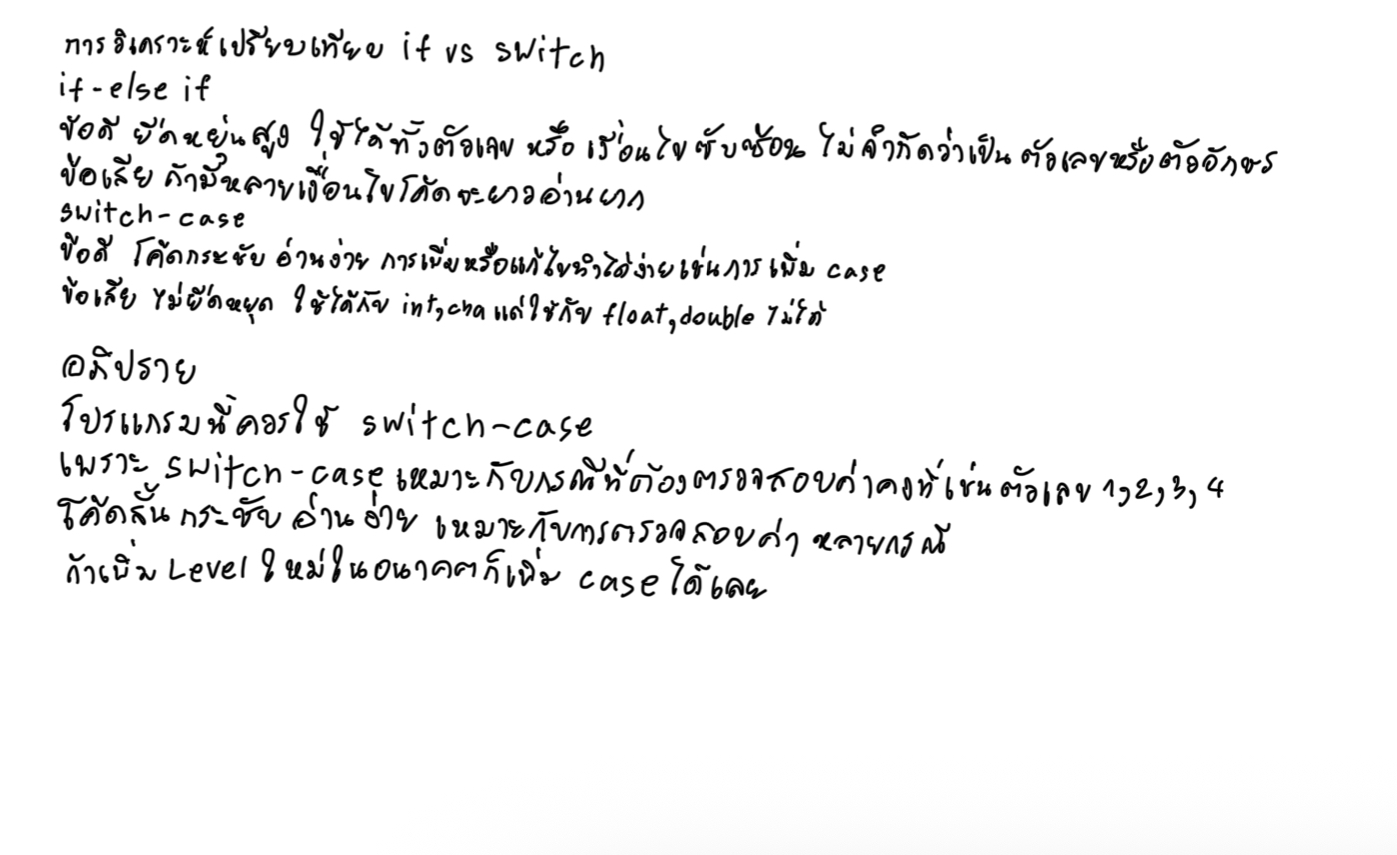 การวิเคราะห์เปรียบเทียบ if vs switch
if-else if
ข้อดี ยืดหยุ่นสูง ใช้ได้ทั้งตัวเลข หรือ เงื่อนไขซับซ้อน ไม่จำกัดว่าเป็น ตัวเลขหรือตัวอักษร
ข้อเสีย ถ้ามีหลายเงื่อนไขโค้ดจะยาวอ่านยาก
switch-case
ข้อดี โค้ดกระชับ อ่านง่าย การเพิ่มหรือแก้ไขทำได้ง่ายเช่นการเพิ่ม case
ข้อเสีย ไม่ยืดหยุด ใช้ได้กับ int,cha แต่ใช้กับ float,double ไม่ได้
อภิปราย
โปรแกรมนี้ควรใช้ switch-case
เพราะ switch-case เหมาะกับกรณีที่ต้องตรวจสอบค่าคงที่เช่นตัวเลข 1,2,3,4
โค้ดสั้น กระชับ อ่านง่าย เหมาะกับการตรวจสอบค่า หลายกรณี
ถ้าเพิ่ม Level ใหม่ในอนาคตก็เพิ่ม case ได้เลย